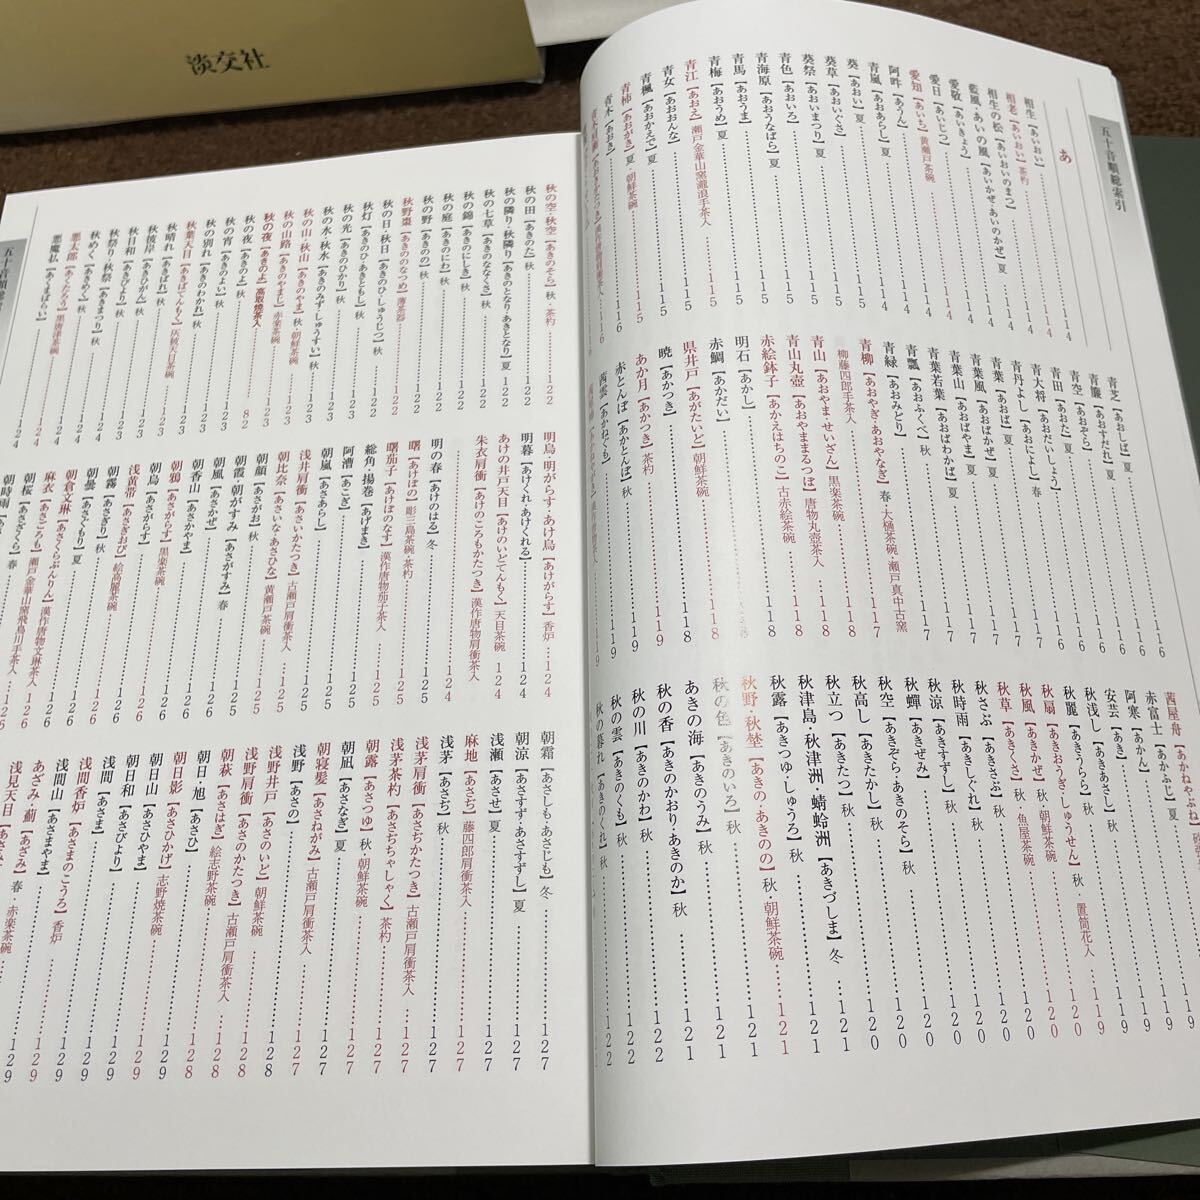 淡交社
五十音順総索引
あ
相生【あいおい】……114
相老【あいおい】茶杓……114
相生の松【あいおいのまつ】……114
藍風・あいの風【あいかぜ・あいのかぜ】夏……114
愛敬【あいきょう】……114
愛日【あいじつ】……114
愛知【あいち】黄瀬戸茶碗……114
阿吽【あうん】……114
青嵐【あおあらし】夏……114
葵【あおい】夏……114
葵草【あおいぐさ】……115
葵祭【あおいまつり】夏……115
青色【あおいろ】……115
青海原【あおうなばら】……115
青馬【あおうま】……115
青梅【あおうめ】夏……115
青江【あおえ】瀬戸金華山窯瀧浪手茶入……115
青女【あおおんな】……115
青楓【あおかえで】夏……115
青柿【あおがき】夏・朝鮮茶碗……115
青木【あおき】……116
青芝【あおしば】夏……116
青簾【あおすだれ】夏……116
青空【あおぞら】……116
青田【あおた】夏……116
青大将【あおだいしょう】……116
青丹よし【あおによし】……117
青葉【あおば】夏……117
青葉風【あおばかぜ】夏……117
青葉山【あおばやま】夏……117
青葉若葉【あおばわかば】夏……117
青瓢【あおふくべ】秋……117
青緑【あおみどり】……117
青柳【あおやぎ・あおやなぎ】春・大樋茶碗・瀬戸真中古窯
柳藤四郎手茶入……117
青山【あおやま・せいざん】黒楽茶碗……118
青山丸壺【あおやままるつぼ】唐物丸壺茶入……118
赤絵鉢子【あかえはちのこ】古赤絵茶碗……118
明石【あかし】……118
赤鯛【あかだい】……118
県井戸【あがたいど】朝鮮茶碗……118
暁【あかつき】……118
あか月【あかつき】茶杓……119
赤とんぼ【あかとんぼ】秋……119
茜雲【あかねぐも】……119
茜屋舟【あかねやぶね】
赤富士【あかふじ】夏……119
阿寒【あかん】……119
安芸【あき】……119
秋浅し【あきあさし】秋……119
秋麗【あきうらら】秋……119
秋扇【あきおうぎ・しゅうせん】秋・置筒花入……120
秋風【あきかぜ】秋・朝鮮茶碗……120
秋草【あきくさ】秋・魚屋茶碗……120
秋さぶ【あきさぶ】秋……120
秋時雨【あきしぐれ】秋……120
秋涼【あきすずし】秋……120
秋蟬【あきぜみ】秋……120
秋空【あきぞら・あきのそら】秋……120
秋高し【あきたかし】秋……120
秋立つ【あきたつ】秋……121
秋津島・秋津洲・蜻蛉洲【あきづしま】冬……121
秋露【あきつゆ・しゅうろ】秋……121
秋野・秋埜【あきの・あきのの】秋・朝鮮茶碗……121
秋の色【あきのいろ】秋……121
あきの海【あきのうみ】秋……121
秋の香【あきのかおり・あきのか】秋……122
秋の川【あきのかわ】秋……122
秋の雲【あきのくも】秋……122
秋の暮れ【あきのくれ】秋……122
秋の空・秋空【あきのそら】秋・茶杓……122
秋の田【あきのた】秋……122
秋の隣り・秋隣り【あきのとなり・あきとなり】夏……122
秋の七草【あきのななくさ】秋……122
秋の錦【あきのにしき】秋……122
秋の庭【あきのにわ】秋……122
秋の野【あきのの】秋……122
秋野棗【あきののなつめ】薄茶器……122
秋の日・秋日【あきのひ・しゅうじつ】秋……122
秋灯【あきのひ・あきともし】秋……123
秋の光【あきのひかり】秋……123
秋の水・秋水【あきのみず・しゅうすい】秋……123
秋の山・秋山【あきのやま】秋・朝鮮茶碗……123
秋の山路【あきのやまじ】赤楽茶碗……123
秋の夜【あきのよ】高取焼茶入……123
秋の夜【あきのよ】秋……82
秋の宵【あきのよい】秋……123
秋の別れ【あきのわかれ】秋……123
秋葉天目【あきばてんもく】灰被天目茶碗……123
秋晴れ【あきばれ】秋……123
秋彼岸【あきひがん】秋……123
秋日和【あきびより】秋……123
秋祭り・秋祭【あきまつり】秋……124
秋めく【あきめく】秋……124
悪太郎【あくたろう】黒唐津茶碗……124
悪魔払【あくまばらい】……124
明烏・明がらす・あけ烏【あけがらす】香炉……124
明暮【あけくれ・あけくれる】……124
あけの井戸天目【あけのいどてんもく】天目茶碗……124
朱衣肩衝【あけのころもかたつき】漢作唐物肩衝茶入
……124
明の春【あけのはる】冬……125
曙【あけぼの】彫三島茶碗・茶杓……125
曙茄子【あけぼのなす】漢作唐物茄子茶入……125
総角・揚巻【あげまき】……125
阿漕【あこぎ】……125
朝嵐【あさあらし】……125
浅井肩衝【あさいかたつき】古瀬戸肩衝茶入……125
朝比奈【あさいな・あさひな】黄瀬戸茶碗……125
朝顔【あさがお】秋……125
朝霞・朝がすみ【あさがすみ】春……125
朝風【あさかぜ】……125
朝香山【あさかやま】……126
朝烏【あさがらす】……126
朝鴉【あさがらす】黒楽茶碗……126
浅黄帯【あさぎおび】絵高麗茶碗……126
朝霧【あさぎり】秋……126
朝曇【あさぐもり】夏……126
朝倉文琳【あさくらぶんりん】漢作唐物文琳茶入……126
麻衣【あさごろも】瀬戸金華山窯飛鳥川手茶入……126
朝桜【あさざくら】春……126
朝時雨……126
朝霜【あさしも・あさじも】冬……127
朝涼【あさすず・あさすずし】夏……127
浅瀬【あさせ】夏……127
麻地【あさぢ】藤四郎肩衝茶入……127
浅茅【あさぢ】……127
浅茅肩衝【あさぢかたつき】古瀬戸肩衝茶入……127
浅茅茶杓【あさぢちゃしゃく】茶杓……127
朝露【あさつゆ】秋・朝鮮茶碗……127
朝凪【あさなぎ】夏……127
朝寝髪【あさねがみ】古瀬戸肩衝茶入……127
浅野【あさの】……127
浅野井戸【あさのいど】朝鮮茶碗……128
浅野肩衝【あさのかたつき】古瀬戸肩衝茶入……128
朝萩【あさはぎ】絵志野茶碗……128
朝日・旭【あさひ】……128
朝日影【あさひかげ】志野焼茶碗……128
朝日山【あさひやま】……129
朝日和【あさびより】……129
浅間【あさま】……129
浅間香炉【あさまのこうろ】香炉……129
浅間山【あさまやま】……129
あざみ・薊【あざみ】春・赤楽茶碗……129
浅見天目【あさみ……129
五十音順